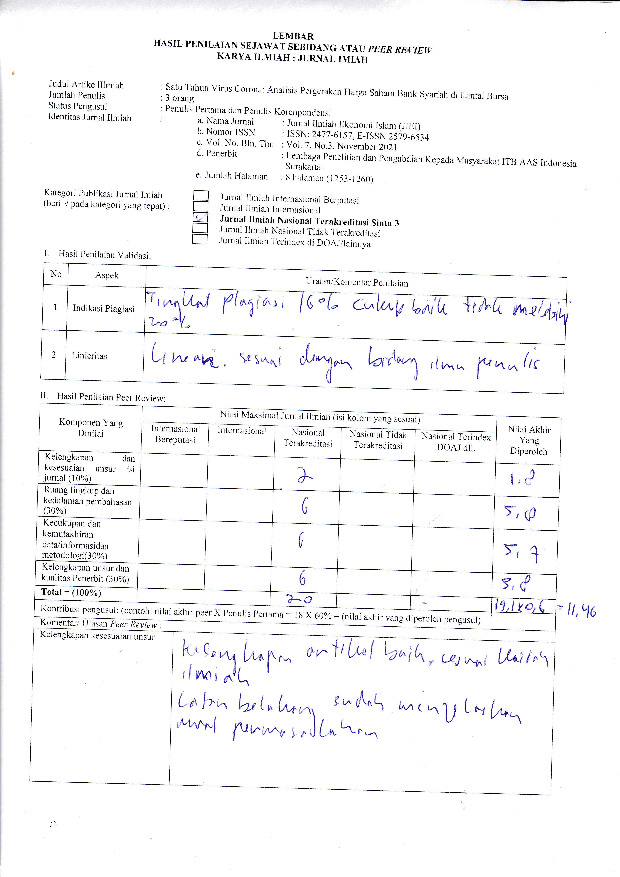 LEMBAR
HASIL PENILAIAN SEJAWAT SEBIDANG ATAU PEER REVIEW
KARYA ILMIAH : JURNAL IMIAH
Judul Artikel Ilmiah : Satu Tahun Virus Corona: Analisis Pergerakan Harga Saham Bank Syariah di Lantai Bursa
Jumlah Penulis : 3 orang
Status Pengusul : Penulis Pertama dan Penulis Korenpondensi
Identitas Jurnal Ilmiah :
a. Nama Jurnal : Jurnal Ilmiah Ekonomi Islam (JIEI)
b. Nomor ISSN : ISSN: 2477-6157, E-ISSN 2579-6534
c. Vol. No. Bln. Thn : Vol. 7. No.3. November 2021
d. Penerbit : Lembaga Penelitian dan Pengabdian Kepada Masyarakat ITB AAS Indonesia
Surakarta
e. Jumlah Halaman : 8 halaman (1253-1260)
Kategori Publikasi Jurnal Imiah
(beri v pada kategori yang tepat) :
Jurnal Ilmiah Internasional Bereputasi
Jurnal Ilmiah Internasional
v Jurnal Ilmiah Nasional Terakreditasi Sinta 3
Jurnal Ilmiah Nasional Tidak Terakreditasi
Jurnal Ilmiah Terindex di DOAJ/lainnya
I. Hasil Penilaian Validasi:
No Aspek Uraian/Komentar Penilaian
1 Indikasi Plagiasi Tingkat plagiasi 16% cukup baik tidak melebihi
20%
2 Linieritas Linear, sesuai dengan bidang ilmu penulis
II. Hasil Penilaian Peer Review:
Komponen Yang Dinilai
Nilai Maksimal Jurnal Ilmiah (isi kolom yang sesuai)
Nilai Akhir Yang Diperoleh
Internasional Bereputasi
Internasional
Nasional Terakreditasi
Nasional Tidak Terakreditasi
Nasional Terindex DOAJ dll.
Kelengkapan dan
kesesuaian unsur isi
jurnal (10%) 2 1,8
Ruang lingkup dan
kedalaman pembahasan
(30%) 6 5,8
Kecukupan dan
kemutakhiran
data/informasi dan
metodologi (30%) 6 5,7
Kelengkapan unsur dan
kualitas Penerbit (30%) 6 5,8
Total = (100%) 20 19,1x0,6 = 11,46
Kontribusi pengusul: (contoh: nilai akhir peer X Penulis Pertama = 18 X 60% = (nilai akhir yang diperoleh pengusul)
Komentar/Ulasan Peer Review :
Kelengkapan kesesuaian unsur
Kelengkapan artikel baik, sesuai kaidah
ilmiah
Latar belakang sudah menjelaskan
awal permasalahan